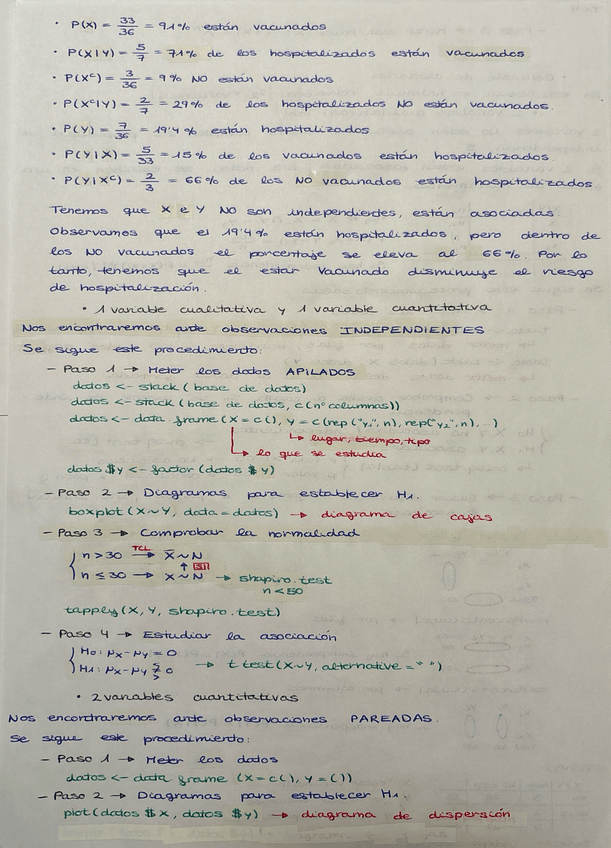 • P(X) = 33/36 = 91% están vacunados
• P(X|Y) = 5/7 = 71% de los hospitalizados están vacunados
• P(Xᶜ) = 3/36 = 9% NO están vacunados
• P(Xᶜ|Y) = 2/7 = 29% de los hospitalizados NO están vacunados.
• P(Y) = 7/36 = 19'4% están hospitalizados
• P(Y|X) = 5/33 = 15% de los vacunados están hospitalizados
• P(Y|Xᶜ) = 2/3 = 66% de los NO vacunados están hospitalizados
Tenemos que X e Y NO son independientes, están asociadas.
Observamos que el 19'4% están hospitalizados, pero dentro de
los NO vacunados el porcentaje se eleva al 66%. Por lo
tanto, tenemos que el estar vacunado disminuye el riesgo
de hospitalización.
• 1 variable cualitativa y 1 variable cuantitativa
Nos encontraremos ante observaciones INDEPENDIENTES
Se sigue este procedimiento:
- Paso 1 → Meter los datos APILADOS
datos <- stack (base de datos)
datos <- stack (base de datos, c(nº columnas))
datos <- data.frame (X = c(), Y = c(rep("y₁", n), rep("y₂", n), ...)
↳ lugar, tiempo, tipo
↳ lo que se estudia
datos $y <- factor (datos $y)
- Paso 2 → Diagramas para establecer H₁.
boxplot (X~Y, data = datos) → diagrama de cajas
- Paso 3 → Comprobar la normalidad
n > 30 TCL → X̄ ~ N
↑ SII
n ≤ 30 → X ~ N → shapiro.test
n < 50
tapply (X, Y, shapiro.test)
- Paso 4 → Estudiar la asociación
H₀: μx - μy = 0
H₁: μx - μy ≠ 0 → t.test (X~Y, alternative = " ")
• 2 variables cuantitativas
Nos encontraremos ante observaciones PAREADAS.
Se sigue este procedimiento:
- Paso 1 → Meter los datos
datos <- data.frame (X = c(), Y = ())
- Paso 2 → Diagramas para establecer H₁.
plot (datos $X, datos $y) → diagrama de dispersión